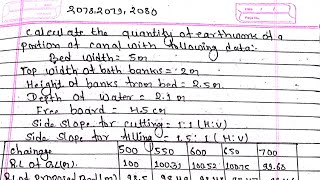 2078, 2079, 2080
Calculate the quantity of earthwork of a
portion of canal with following data:-
Bed width = 5m
Top width of both banks = 2m
Height of banks from bed = 2.5m
Depth of water = 2.1m
Free board = 45cm
Side slope for cutting = 1:1 (H:V)
Side slope for filling = 1.5:1 (H:V)
chainage 500 550 600 650 700
R.L of G.L(m). 100 100.31 100.52 100.75 99.68
R.L of Proposed Bed(m) 98.5